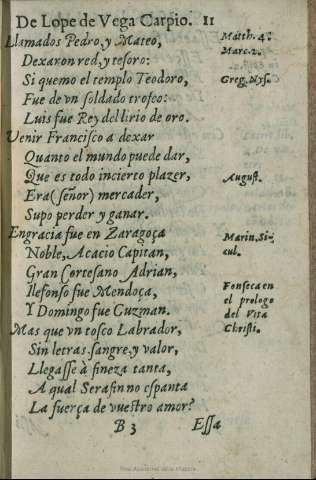 De Lope de Vega Carpio. 11
Llamados Pedro, y Mateo,
Matth. 4.
Dexaron red, y tesoro:
Marc. 2.
Si quemo el templo Teodoro,
Greg. Nys.
Fue de vn soldado trofeo:
Luis fue Rey del lirio de oro.
Venir Francisco a dexar
Quanto el mundo puede dar,
Que es todo incierto plazer,
August.
Era (señor) mercader,
Supo perder y ganar.
Engracia fue en Zaragoça
Marin. Si-
Noble, Acacio Capitan,
cul.
Gran Cortesano Adrian,
Ilefonso fue Mendoça,
Fonseca en
Y Domingo fue Guzman.
el prologo
del Vita
Mas que vn tosco Labrador,
Christi.
Sin letras, sangre, y valor,
Llegasse à fineza tanta,
A qual Serafin no espanta
La fuerça de vuestro amor?
B 3
Essa
Real Academia de la Historia